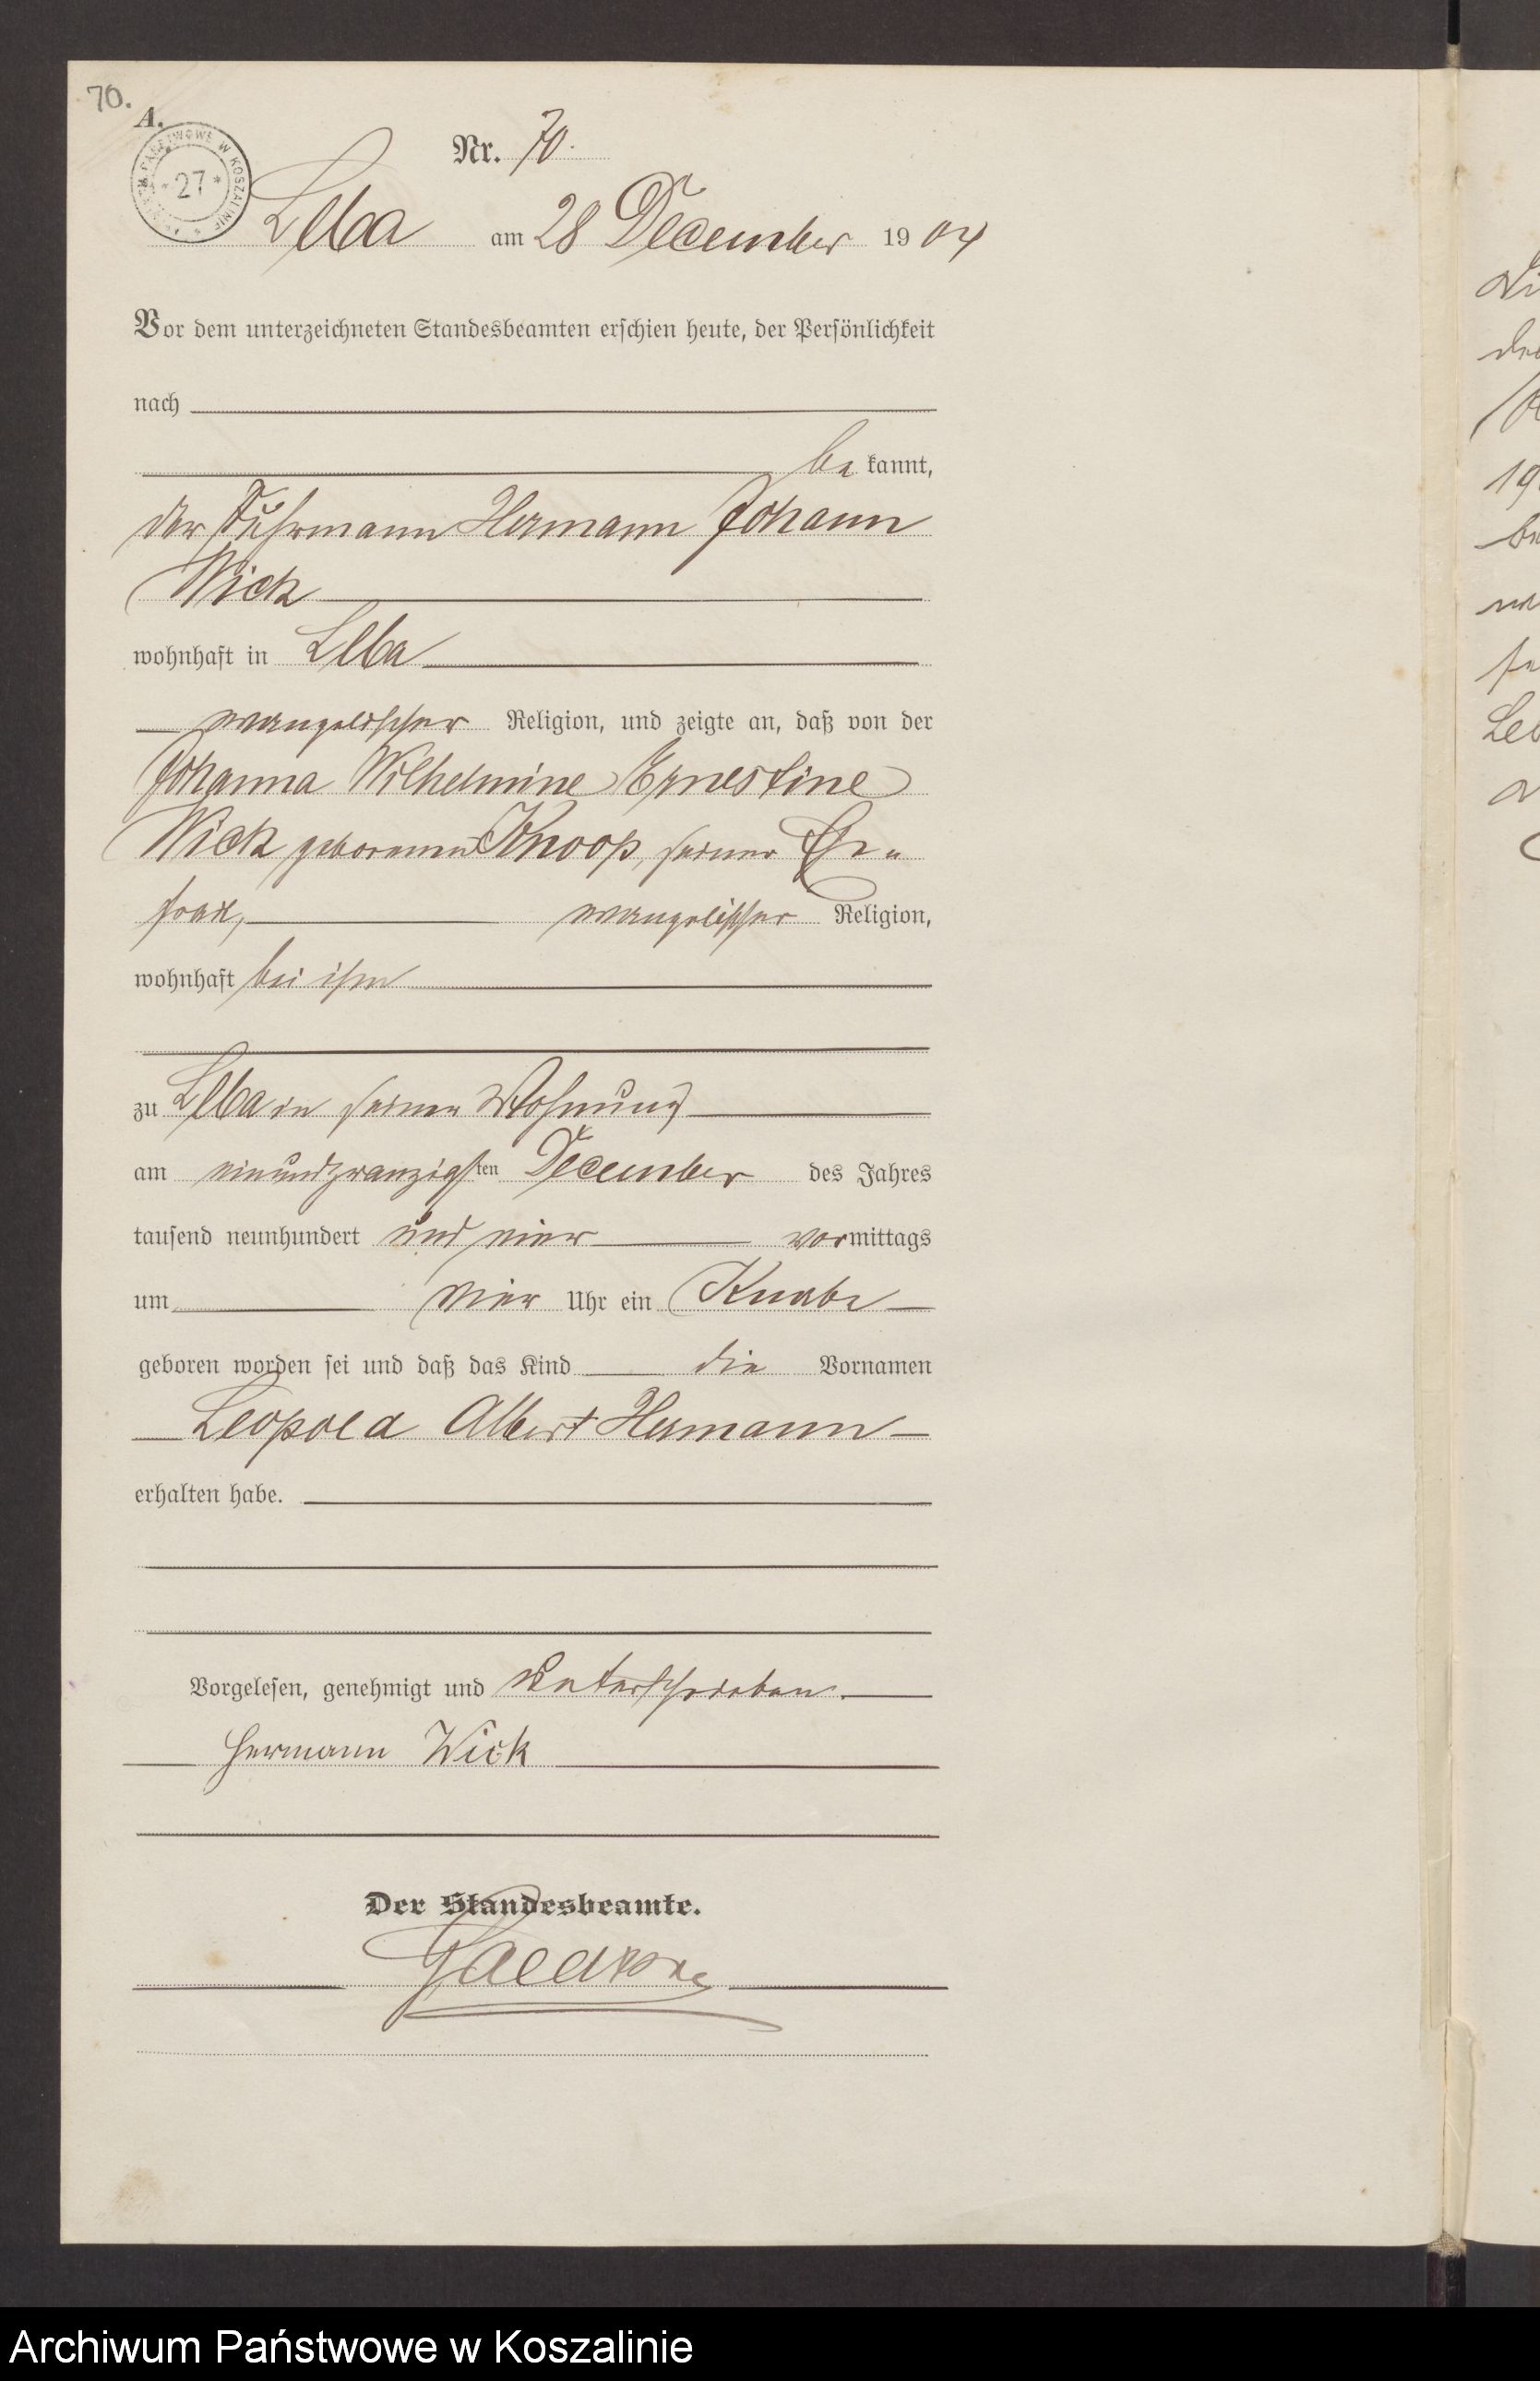 70.
A.
Nr. 70.
27
Leba am 28 December 1904
Vor dem unterzeichneten Standesbeamten erschien heute, der Persönlichkeit
nach
be kannt,
der Fuhrmann Hermann Johann
Wick
wohnhaft in Leba
evangelischer Religion, und zeigte an, daß von der
Johanna Wilhelmine Ernestine
Wick geborenen Knoop, seiner Ehe-
frau, evangelischer Religion,
wohnhaft bei ihm
zu Leba in seiner Wohnung
am einundzwanzigsten December des Jahres
tausend neunhundert und vier vormittags
um vier Uhr ein Knabe
geboren worden sei und daß das Kind die Vornamen
Leopold Albert Hermann
erhalten habe.
Vorgelesen, genehmigt und unterschrieben.
Hermann Wick
Der Standesbeamte.
Archiwum Państwowe w Koszalinie